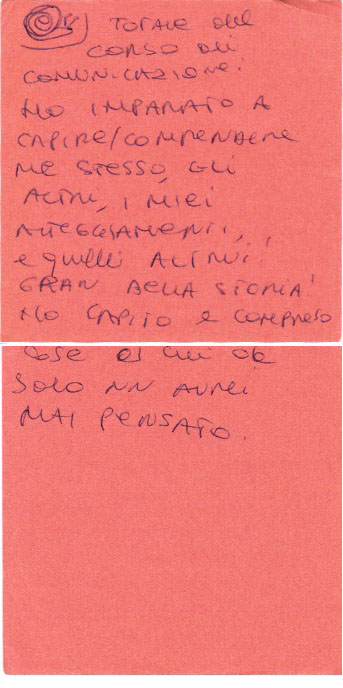 TOTALE del
CORSO di
COMUNICAZIONE!
HO IMPARATO A
CAPIRE/COMPRENDERE
ME STESSO, GLI
ALTRI, I MIEI
ATTEGGIAMENTI,
e quelli ALTRUI!
GRAN BELLA STORIA!
HO CAPITO e COMPRESO
COSE di cui DA
SOLO NN AVREI
MAI PENSATO.